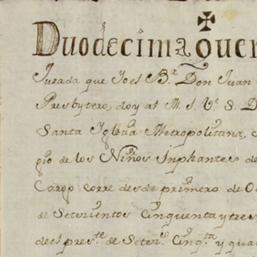 Duodecima quen
Jurada que Yo el B.r Don Juan
Presbytero, doy al M. I. V.e S. D
Santa Iglecia Metropolitana,
gio de los Niños Inphantes de
Cargo corre desde primero de O
de Setecientos Cinquenta y tres
del pres.te de Setec.s Cinq.ta y qua